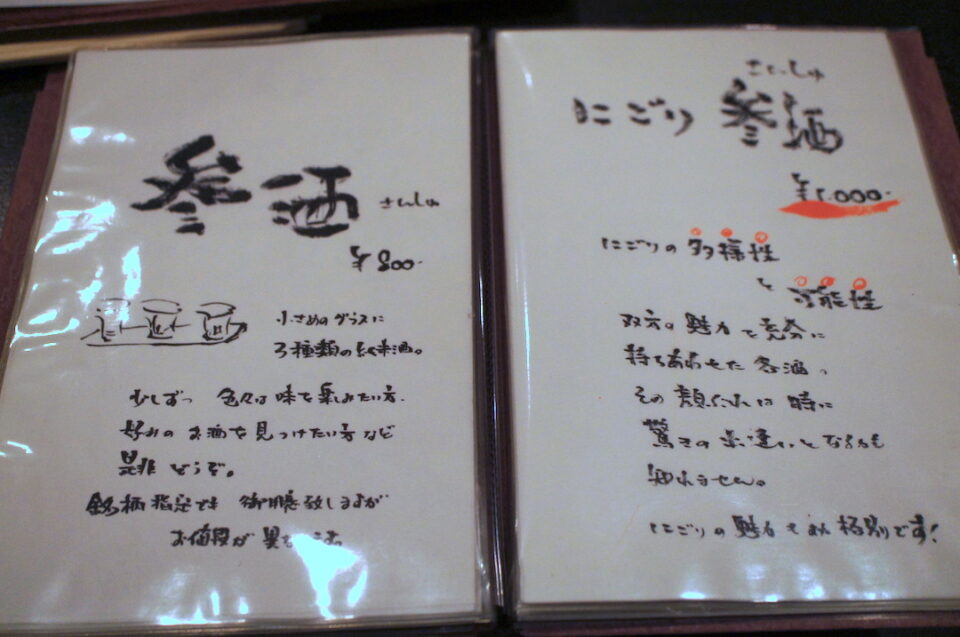 参酒 さんしゅ
¥800.
小さめのグラスに
3種類の純米酒。
少しずつ 色々な味を楽しみたい方.
好みのお酒を見つけたい方など
是非どうぞ。
銘柄指定でも 御用意致しますが
お値段が異なります
さんしゅ
にごり 参酒
¥1.000.
にごりの多様性
と 可能性
双方の魅力を充分に
持ちあわせた各酒。
その顔ぶれは時に
驚きの出逢いとなるかも
知れません。
にごりの魅力もまた格別です!